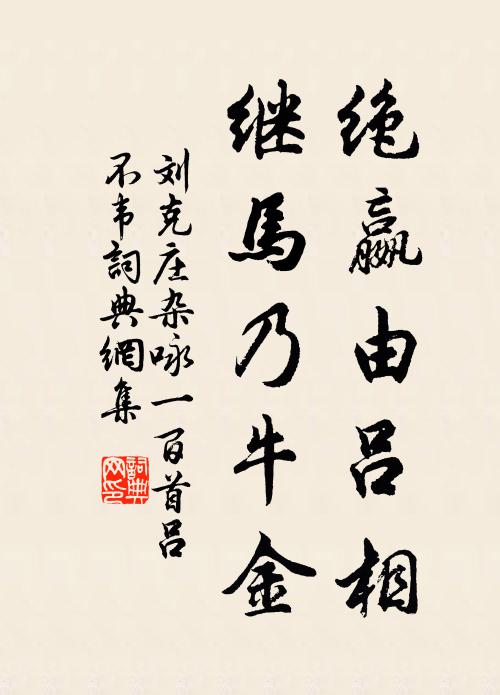 绝嬴由吕相
继马乃牛金
刘克庄杂咏一百首吕
不韦詞典網集
詞典
网印